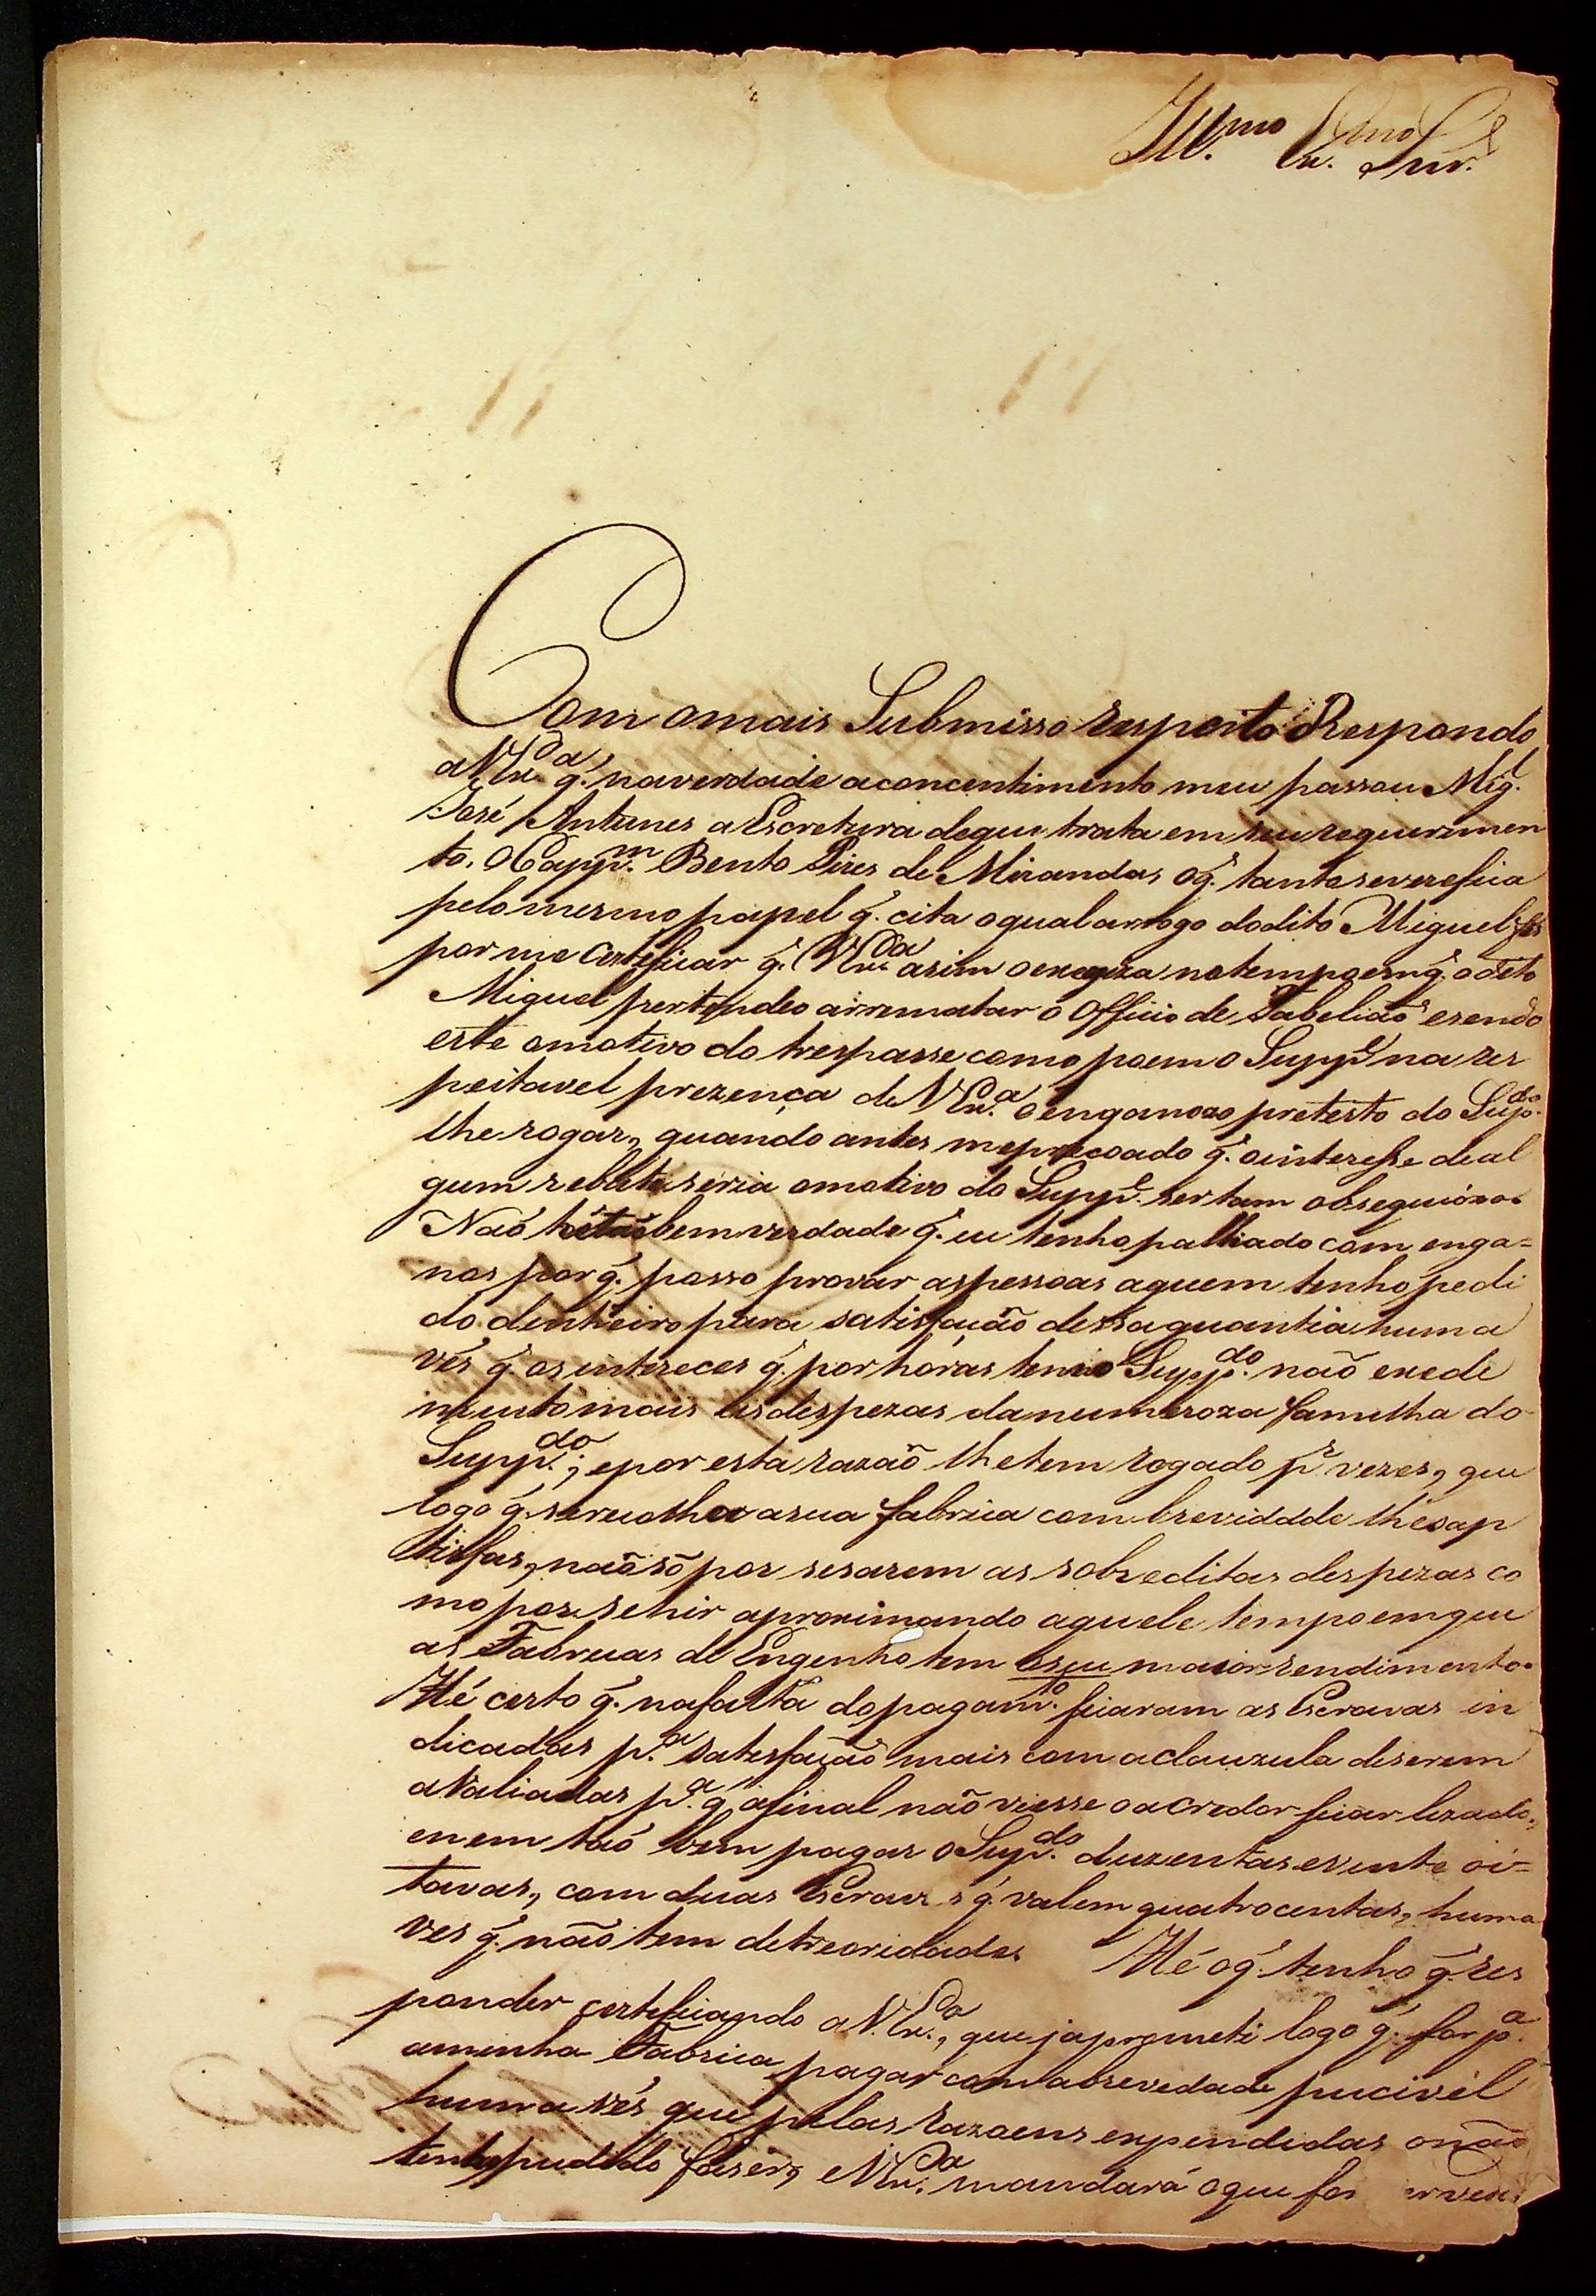 Ill.mo Ex.mo Snr.
Com omais Submisso respeito Respondo
a V Ex.cia q. naverdade aconcentimento meu passou Mig.l
José Antunes a Escretura deque trata em seu requerimen
to, O Capp.m Bento Pires de Miranda, oq. tanto severefica
pelo mesmo papel q. cita o qual arrogo dodito Miguel fis
por me certeficar q. V Ex.cia asim o exegiza notempo emq. o dito
Miguel pertendeo arrematar o Officio de Tabelião esendo
este omotivo do trespasse como poem o Supp.e na res
peitavel prezença de V Ex.a o enganozo pretesto do Sup.do
lhe rogar, quando antes me q. ointeresse deal
gum rebate seria omotivo do Supp.e ser tam obsequiózo.
Naõ hé taõ bem verdade q. eu tenho palliado com enga=
nos por q. posso provar as pessoas aquem tenho pedi
do dinheiro para satisfação dessa quantia huma
vés q. os intereces q. por hóras tem o Supp.do não exede
muito mais as despezas da numeroza familha do
Supp.do; epor esta razaõ lhe tem rogado p.r vezes, que
logo q. serecolher asua fabrica com breviddde lhésap
tisfas, naõ só por sesarem as sobreditas despezas co
mo por se hir aproximando aquele tempo emque
as Fabricas de Engenho tem oseu maior rendimento.
Hé certo q. nafalta dopagam.to ficaram as Escravas in
dicadas p.a Satesfaçaõ mais com aclauzula deserem
avaliadas p.a q. afinal não viesse oacredor ficar lezado,
enem taõ bem pagar o Sup.do duzentas evinte oi=
tavas, com duas Escravas q. valem quatrocentas, huma
ves q. não tem detreoridades Hé oq. tenho q. res
ponder certeficando a V. Ex.cia, que japrometi logo q. for p.a
aminha Fabrica pagar com abrevedade pucivél
huma vés que pelas Razoens expendidas onaõ
tenho pudido fáser, e V Ex.cia mandará oque for servido